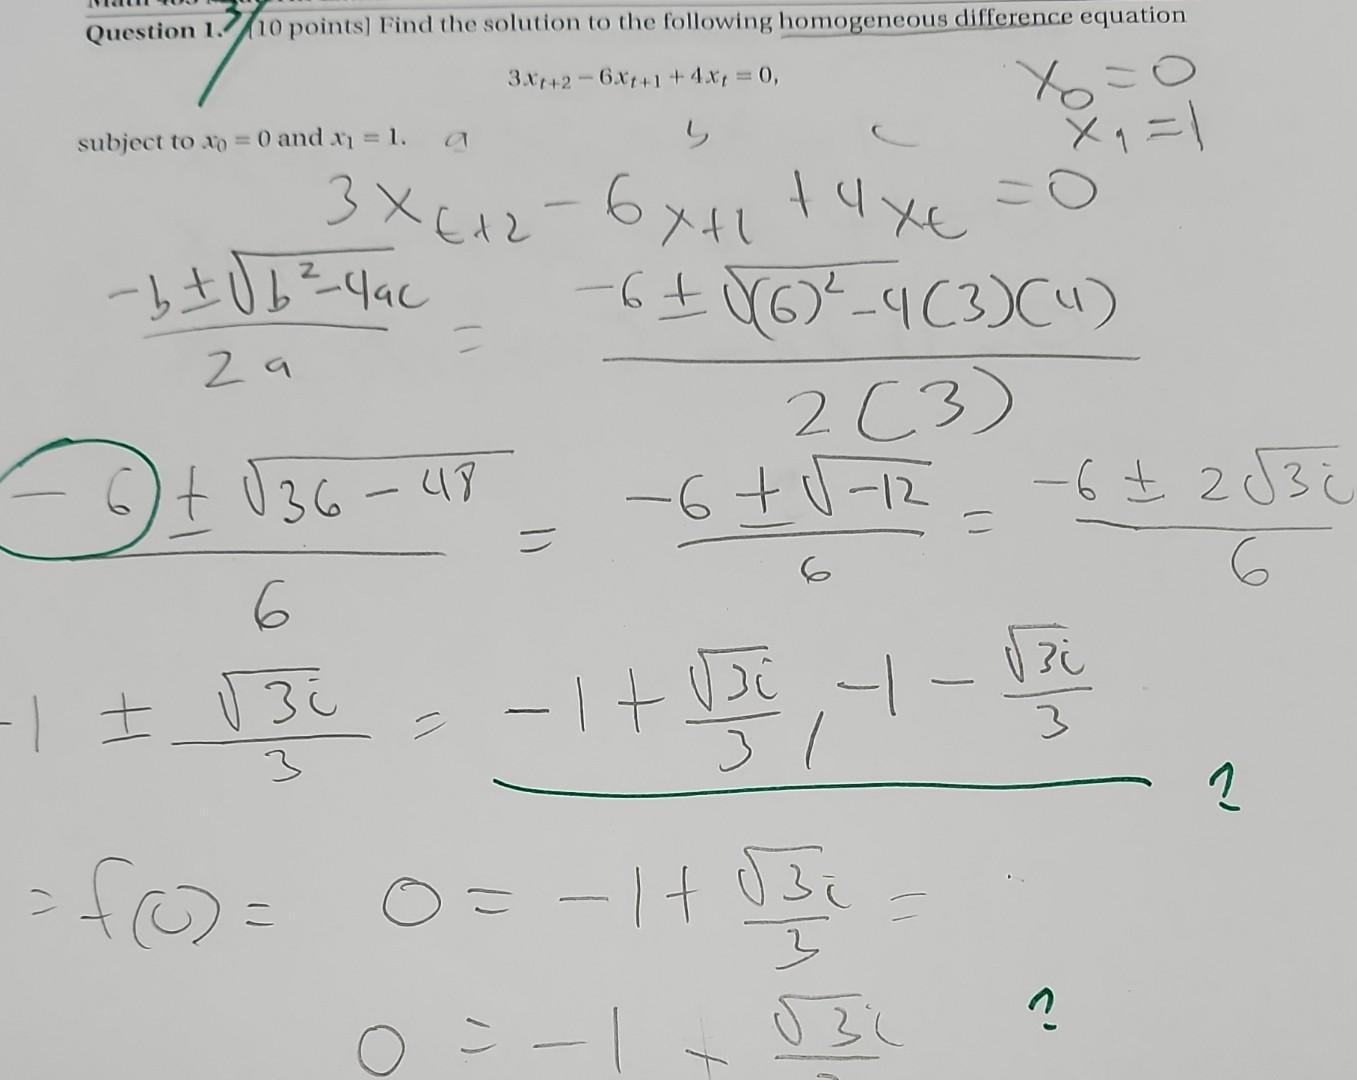 Question 1. 3/ [10 points] Find the solution to the following homogeneous difference equation
3x_{t+2} − 6x_{t+1} + 4x_t = 0,
x_0 = 0
subject to x_0 = 0 and x_1 = 1.
x_1 = 1
a b c
3x_{t+2} − 6_{x+1} + 4x_t = 0
\frac{-b ± √(b² − 4ac)}{2a} = \frac{-6 ± √((6)² − 4(3)(4))}{2(3)}
\frac{-6 ± √(36 − 48)}{6} = \frac{-6 ± √(−12)}{6} = \frac{-6 ± 2√3i}{6}
-1 ± \frac{√3i}{3} = -1 + \frac{√3i}{3} , -1 − \frac{√3i}{3}
?
= f(0) = 0 = -1 + \frac{√3i}{3} =
0 = -1 + √3i ?